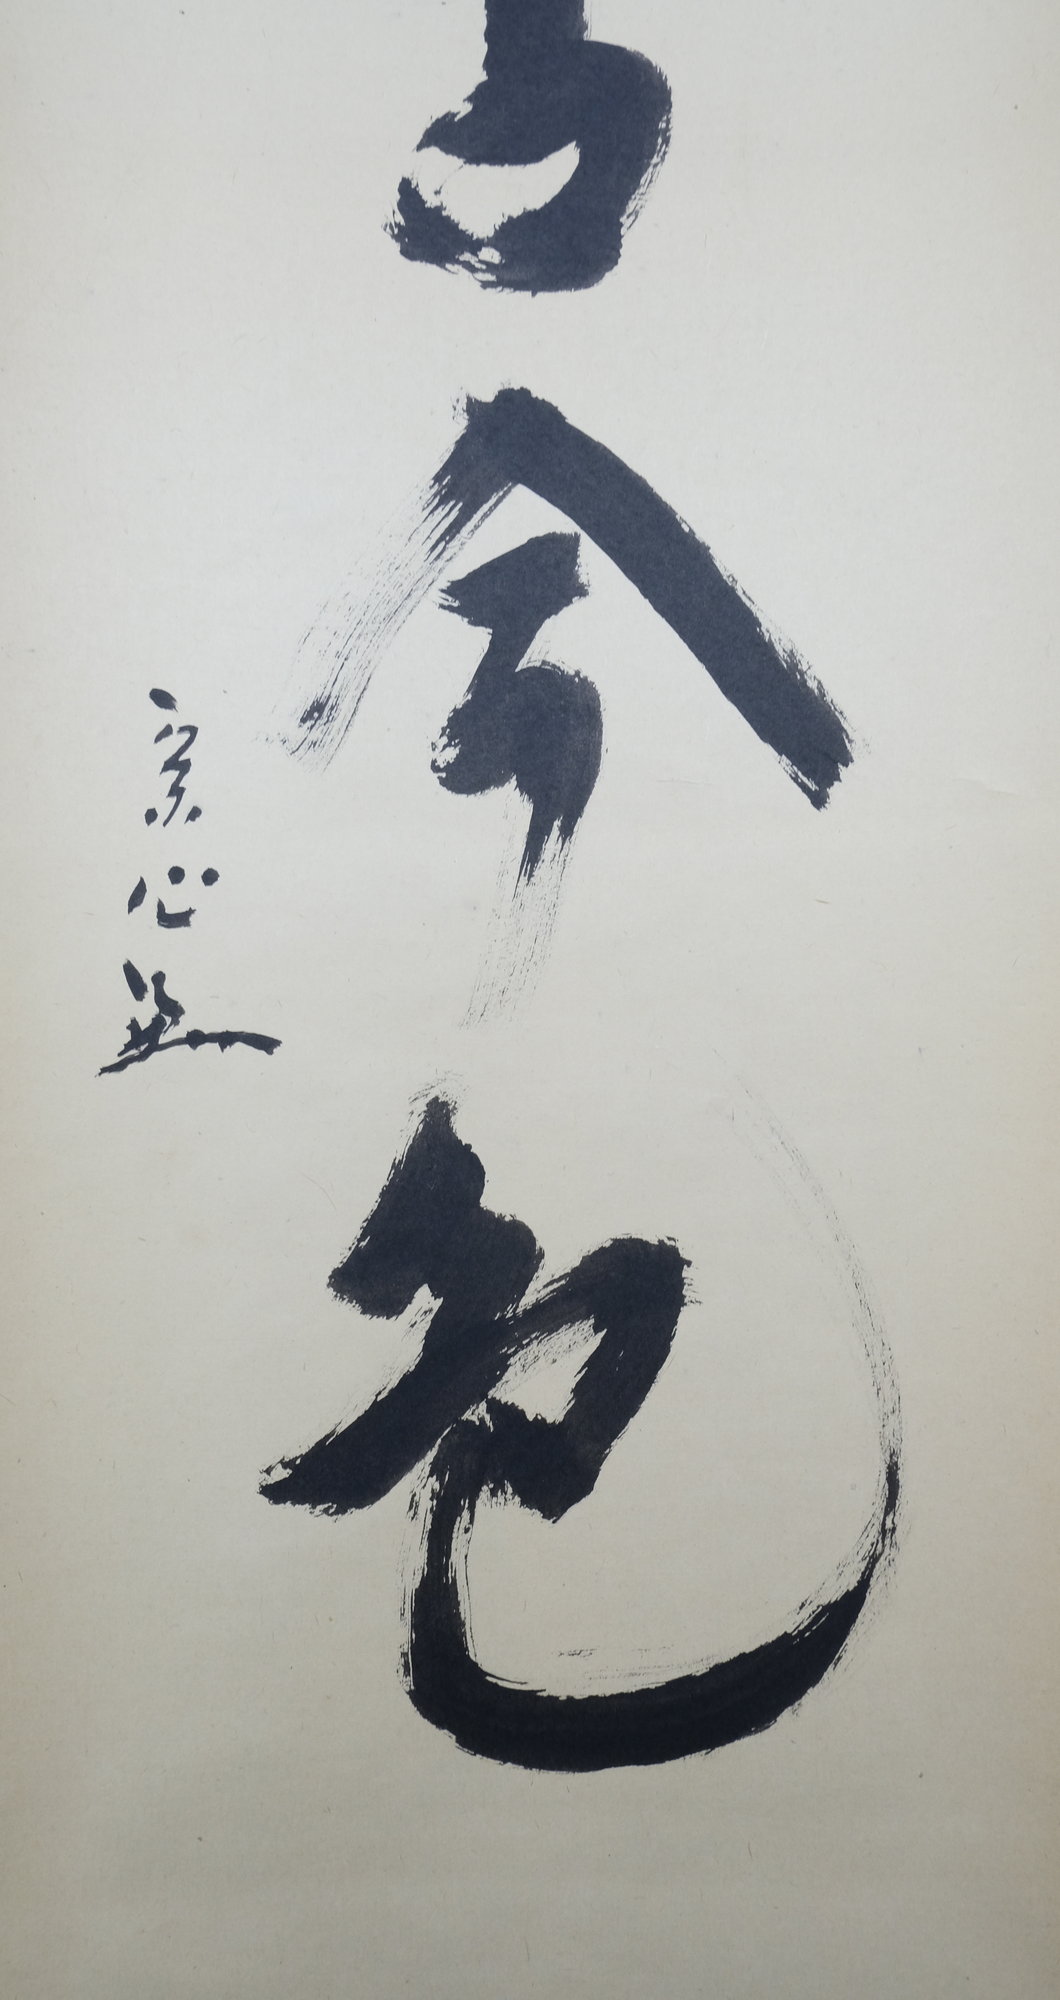 古今色
宗心